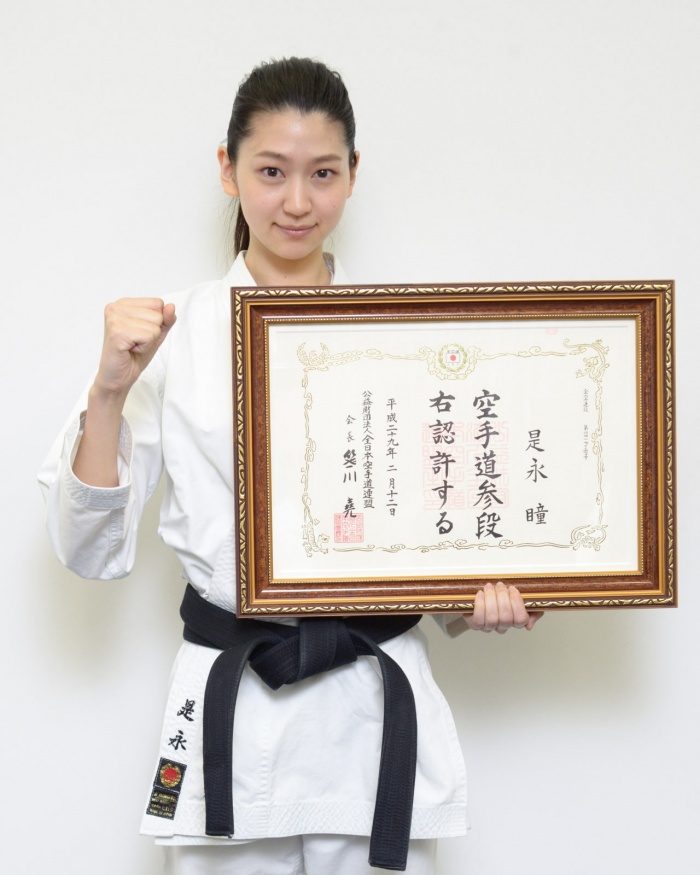 是永 瞳
空手道参段
右認許する
平成二十九年 二月十二日
公益財団法人全日本空手道連盟
会長 笹川 堯
是永